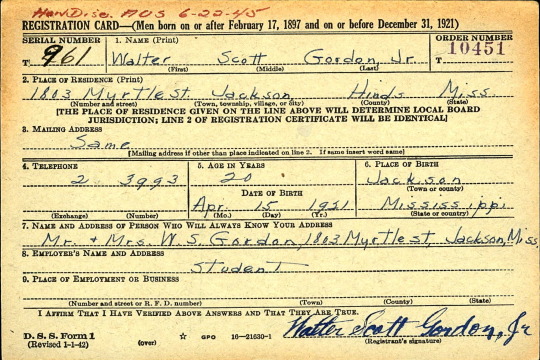 Hon. Disc. AUS 6-22-45
REGISTRATION CARD—(Men born on or after February 17, 1897 and on or before December 31, 1921)
SERIAL NUMBER
T 961
1. NAME (Print)
Walter Scott Gordon, Jr.
(First) (Middle) (Last)
ORDER NUMBER
T 10451
2. PLACE OF RESIDENCE (Print)
1803 Myrtle St. Jackson, Hinds Miss.
(Number and street) (Town, township, village, or city) (County) (State)
[THE PLACE OF RESIDENCE GIVEN ON THE LINE ABOVE WILL DETERMINE LOCAL BOARD
JURISDICTION; LINE 2 OF REGISTRATION CERTIFICATE WILL BE IDENTICAL]
3. MAILING ADDRESS
Same
[Mailing address if other than place indicated on line 2. If same insert word same]
4. TELEPHONE
2 3993
(Exchange) (Number)
5. AGE IN YEARS
20
DATE OF BIRTH
Apr. 15 1921
(Mo.) (Day) (Yr.)
6. PLACE OF BIRTH
Jackson
(Town or county)
Mississippi
(State or country)
7. NAME AND ADDRESS OF PERSON WHO WILL ALWAYS KNOW YOUR ADDRESS
Mr. + Mrs. W. S. Gordon, 1803 Myrtle St, Jackson, Miss.
8. EMPLOYER'S NAME AND ADDRESS
Student
9. PLACE OF EMPLOYMENT OR BUSINESS
(Number and street or R. F. D. number) (Town) (County) (State)
I AFFIRM THAT I HAVE VERIFIED ABOVE ANSWERS AND THAT THEY ARE TRUE.
D. S. S. Form 1
(Revised 1-1-42) (over) ☆ GPO 16-21630-1
Walter Scott Gordon, Jr
(Registrant's signature)